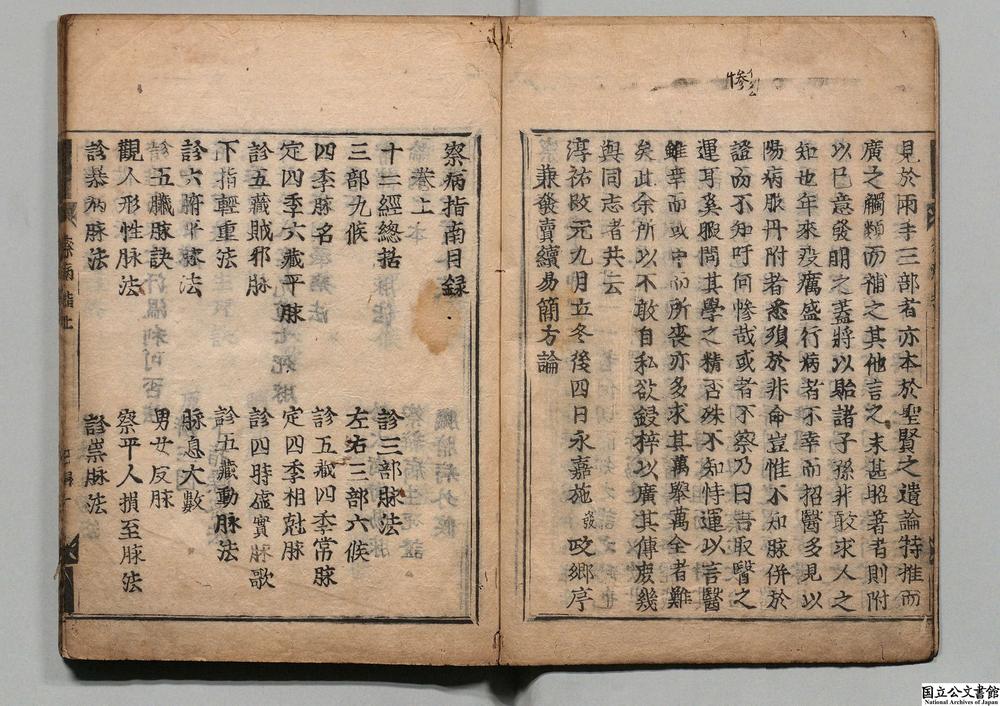 見於兩手三部者亦本於聖賢之遺論特推而
廣之觸類而補之其他言之未甚昭著者則附
以己意發明之蓋將以貽諸子孫非敢求人之
知也年來疫癘盛行病者不幸而招醫多見以
陽病服丹附者悉殞於非命豈惟不知脉併於
證而不知吁何慘哉或者不察乃曰吾取醫之
運耳奚暇問其學之精否殊不知恃運以言醫
雖幸而或中而所喪亦多求其萬擧萬全者難
矣此余所以不敢自私欲鋟梓以廣其傳庶幾
與同志者共云
淳祐改元九月立冬後四日永嘉施發政卿序
兼發賣續易簡方論
慘
察病指南目録
卷上
十二經總括
診三部脉法
三部九候
左右三部六候
四季脉名
診五藏四季常脉
定四季六藏平脉
定四季相尅脉
診五藏賊邪脉
診四時虛實脉歌
下指輕重法
診五藏動脉法
診六腑平脉法
脉息大數
診五臟脉訣
男女反脉
觀人形性脉法
察平人損至脉法
診暴病脉法
診祟脉法
察病指上
国立公文書館
National Archives of Japan